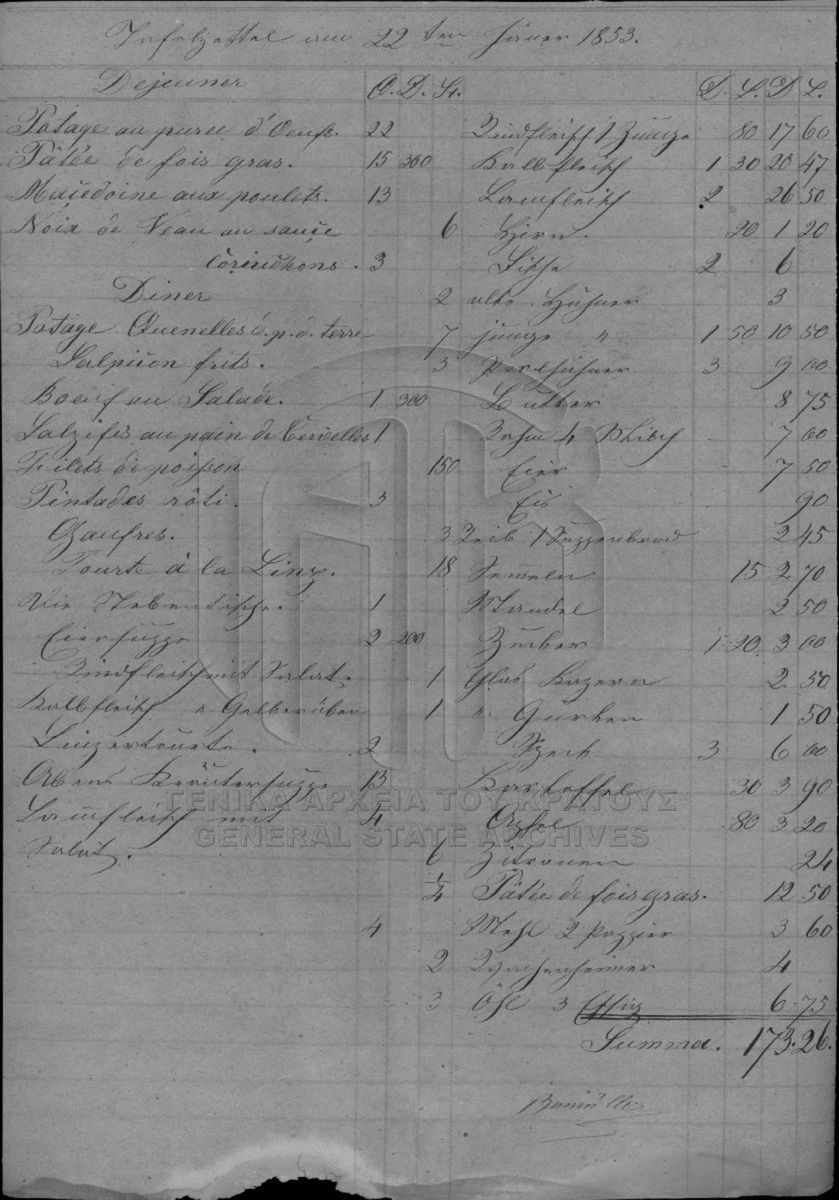 Tafelzettel am 22ten Jäner 1853.
Dejeuner O. D. St. D. L. D L.
Potage au puree d'Oeufs. 22 Rindfleisch 1 Zunge 80 17 60
Pâtée de fois gras. 15 300 Kalbfleisch 1 30 20 47
Maçedoine aux poulets. 13 Lamfleisch 2 26 50
Noix de Veau au sauçe 6 Hirn. 20 1 20
Corinchons. 3 Fische 2 6
Diner 2 alte Hühner 3
Potage Quenelles d. p. d. terre 7 junge " 1 50 10 50
Salpicon frits. 3 Perlhühner 3 9 00
Boeuf au Salade. 1 300 Butter 8 75
Salzifis au pain de Cervelles 1 Rahm 4 Milch 7 00
Filets de poisson 150 Eier 7 50
Pintades rôti. 3 Eis 90
Gaufres. 3 Leib 1 Suppenbrod 2 45
Tourte à la Linz. 18 Semeln 15 2 70
Die Nebentische. 1 Mandel 2 50
Eiersuppe 2 200 Zucker 1 20 3 00
Rindfleisch mit Salat. 1 Glas Kapern 2 50
Kalbfleisch " Gelberüben 1 " Gurken 1 50
Linzertourte. 2 Speck 3 6 00
Abens Kräutersuppe 13 Kartoffel 30 3 90
Lamfleisch mit 4 Apfel 80 3 20
Salat. 6 Zitronen 24
1/4 Pâtée de foisgras. 12 50
4 Mehl 2 Pappier 3 60
2 Wachenheimer 4
3 Öhl 3 Essig 6 75
Summa. 173. 26.
ΓΕΝΙΚΑ ΑΡΧΕΙΑ ΤΟΥ ΚΡΑΤΟΥΣ
GENERAL STATE ARCHIVES